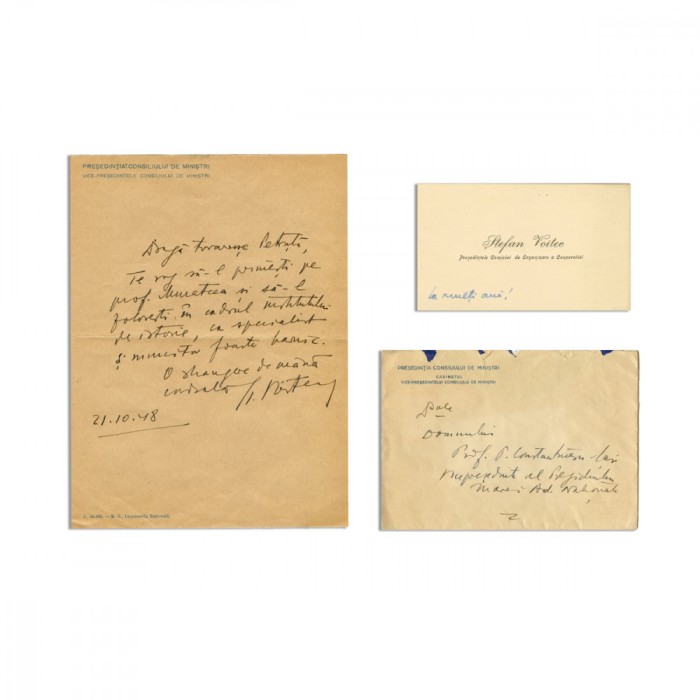 PREȘEDINȚIA CONSILIULUI DE MINIȘTRI
VICE-PREȘEDINTELE CONSILIULUI DE MINIȘTRI
Dragă tovarășe Petrică,
Te rog să-l primești pe
prof. și să-l
folosești în cadrul institutului
de istorie, ca specialist
și muncitor foarte harnic.
O strângere de mână
21.10.48
Ștefan Voitec
Președintele Comisiei de Organizare a Cooperației
La mulți ani!
PREȘEDINȚIA CONSILIULUI DE MINIȘTRI
CABINETUL
VICE-PREȘEDINTELUI CONSILIULUI DE MINIȘTRI
Dsale
Domnului
Prof. P. Constantinescu-Iași
Vicepreședinte al Prezidiului
Marei Ad. Naționale